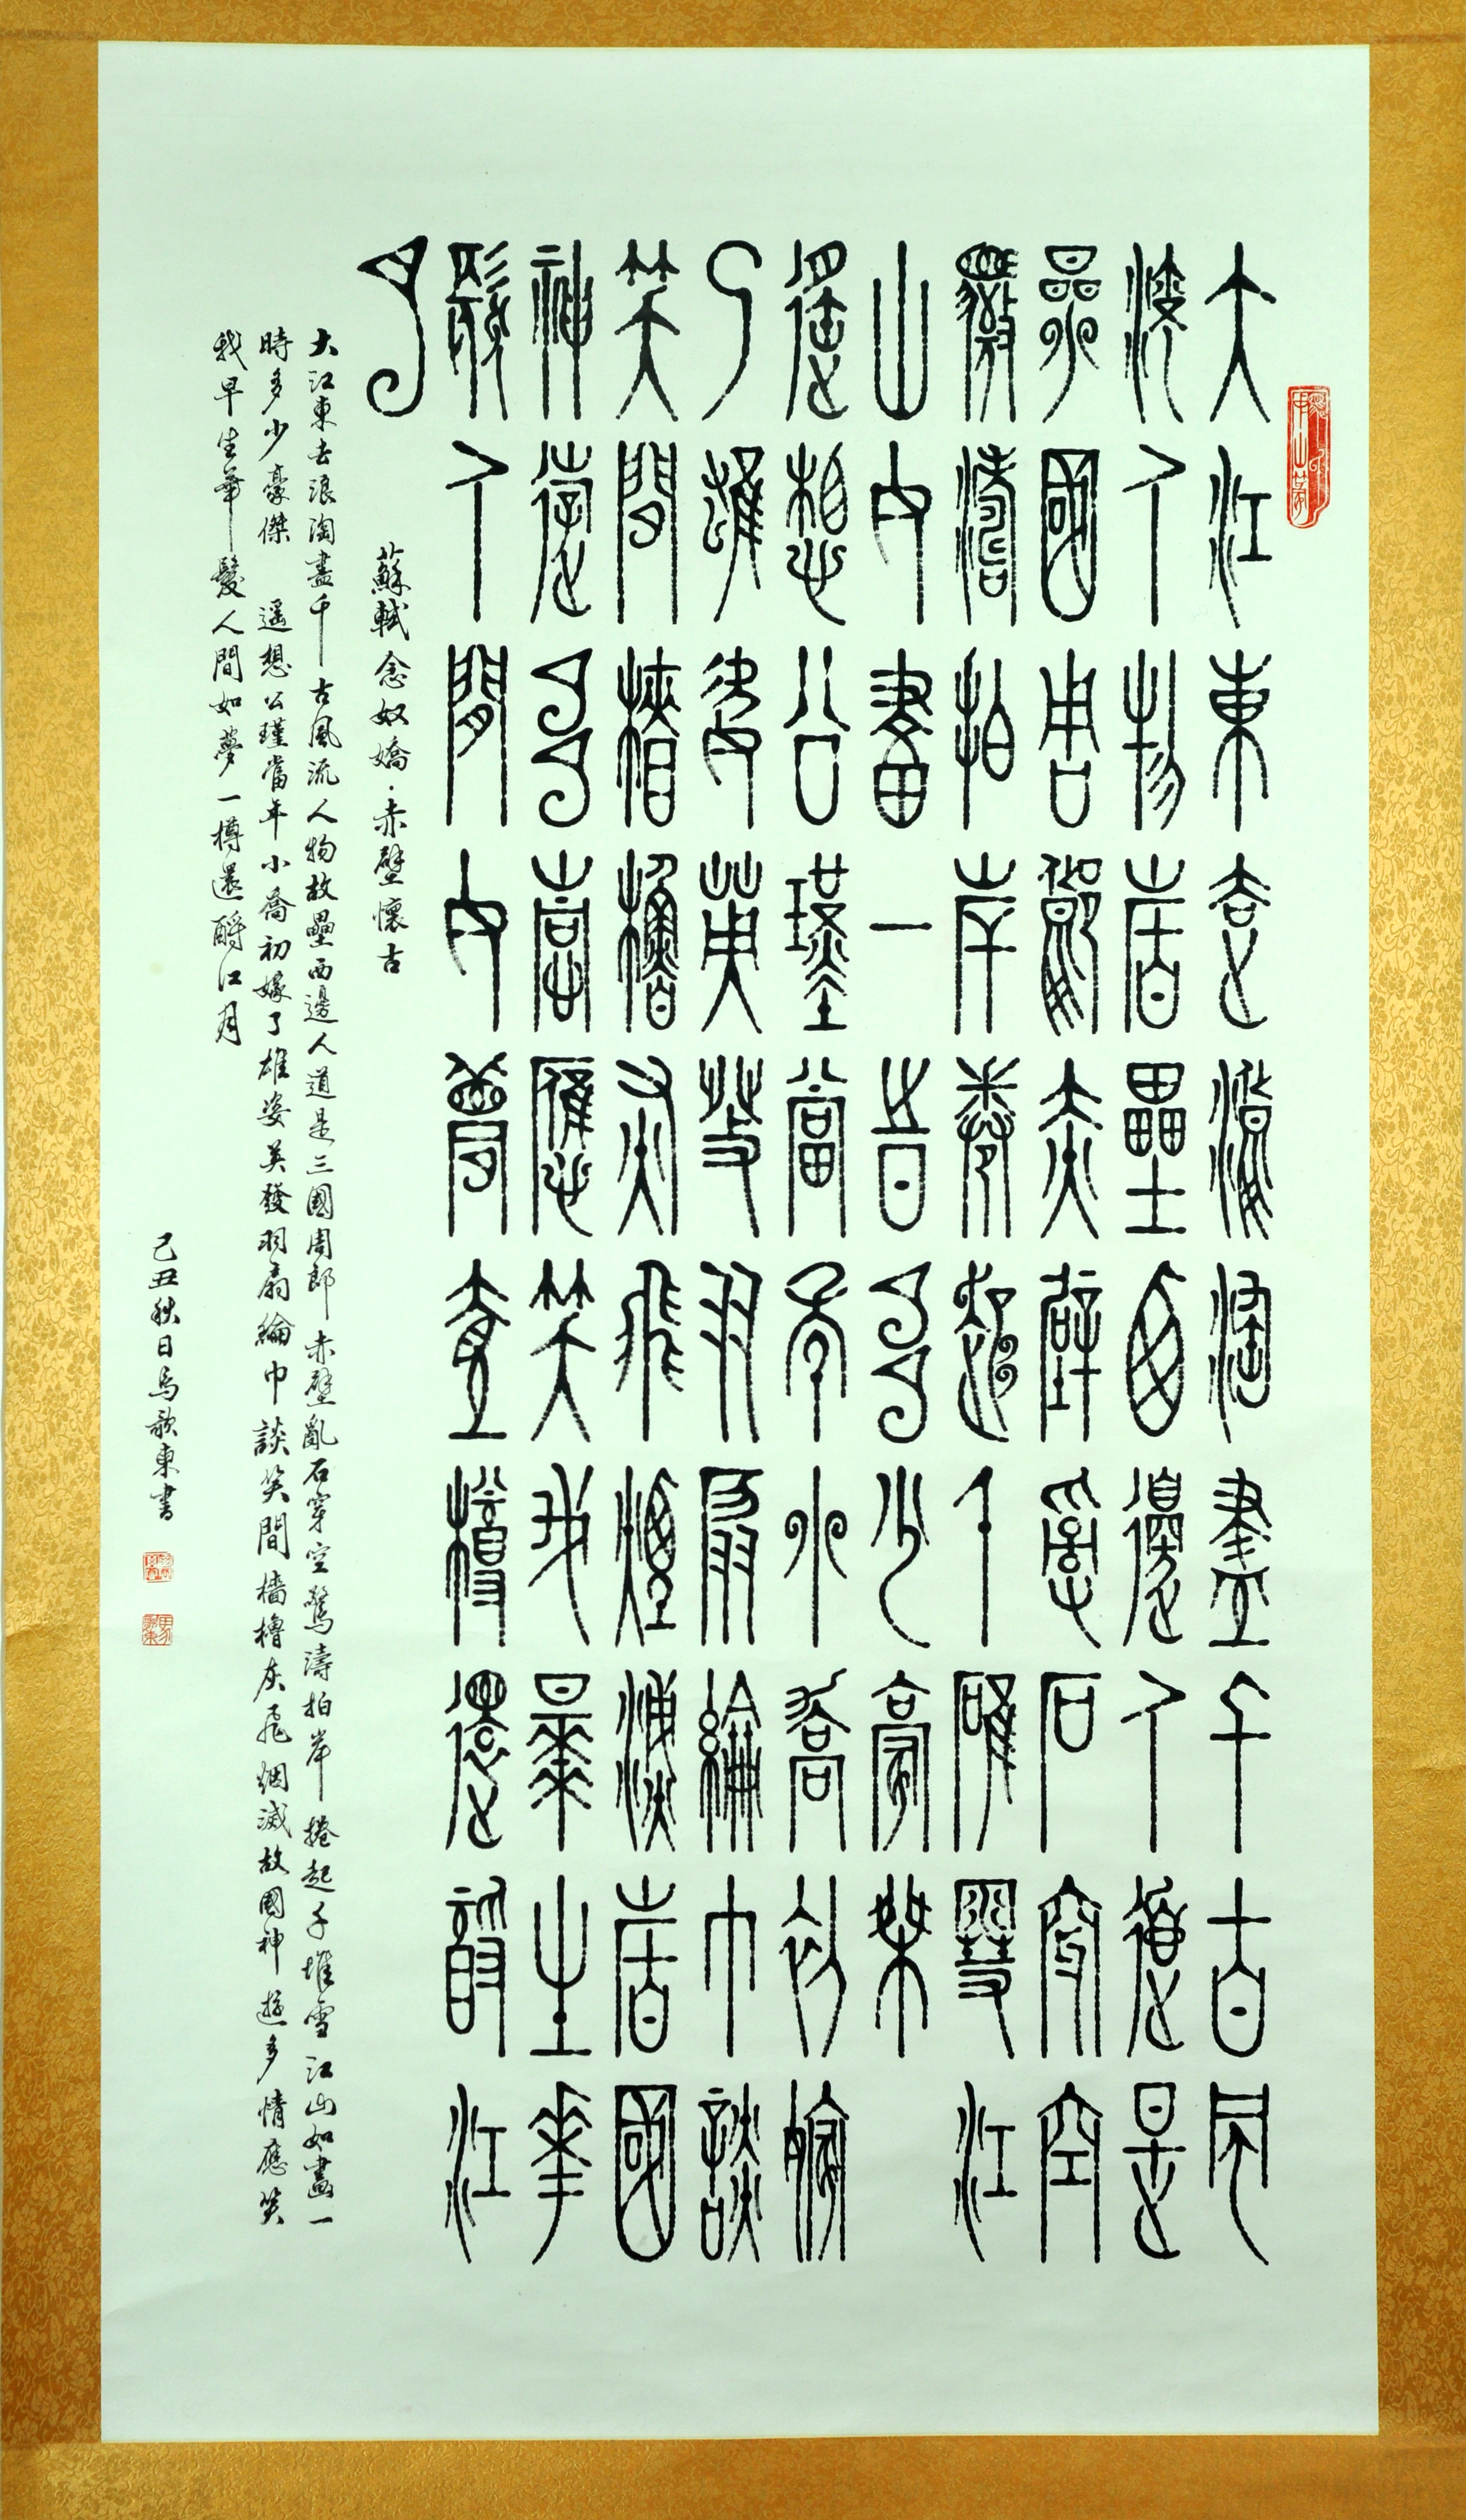 大江東去浪淘盡千古風
流人物故壘西邊人道是
參國周郎赤壁亂石穿空
驚濤拍岸捲起千堆雪江
山如畫一時多少豪傑
遥想公瑾當年小喬初嫁
了雄姿英發羽扇綸巾談
笑間檣櫓灰飛煙滅故國
神遊多情應笑我早生華
髮人間如夢壹樽還酹江
月
蘇軾念奴嬌·赤壁懷古
大江東去浪淘盡千古風流人物故壘西邊人道是三國周郎赤壁亂石穿空驚濤拍岸捲起千堆雪江山如畫一
時多少豪傑 遥想公瑾當年小喬初嫁了雄姿英發羽扇綸巾談笑間檣櫓灰飛烟滅故國神遊多情應笑
我早生華髮人間如夢一樽還酹江月
己丑秋日馬歌東書